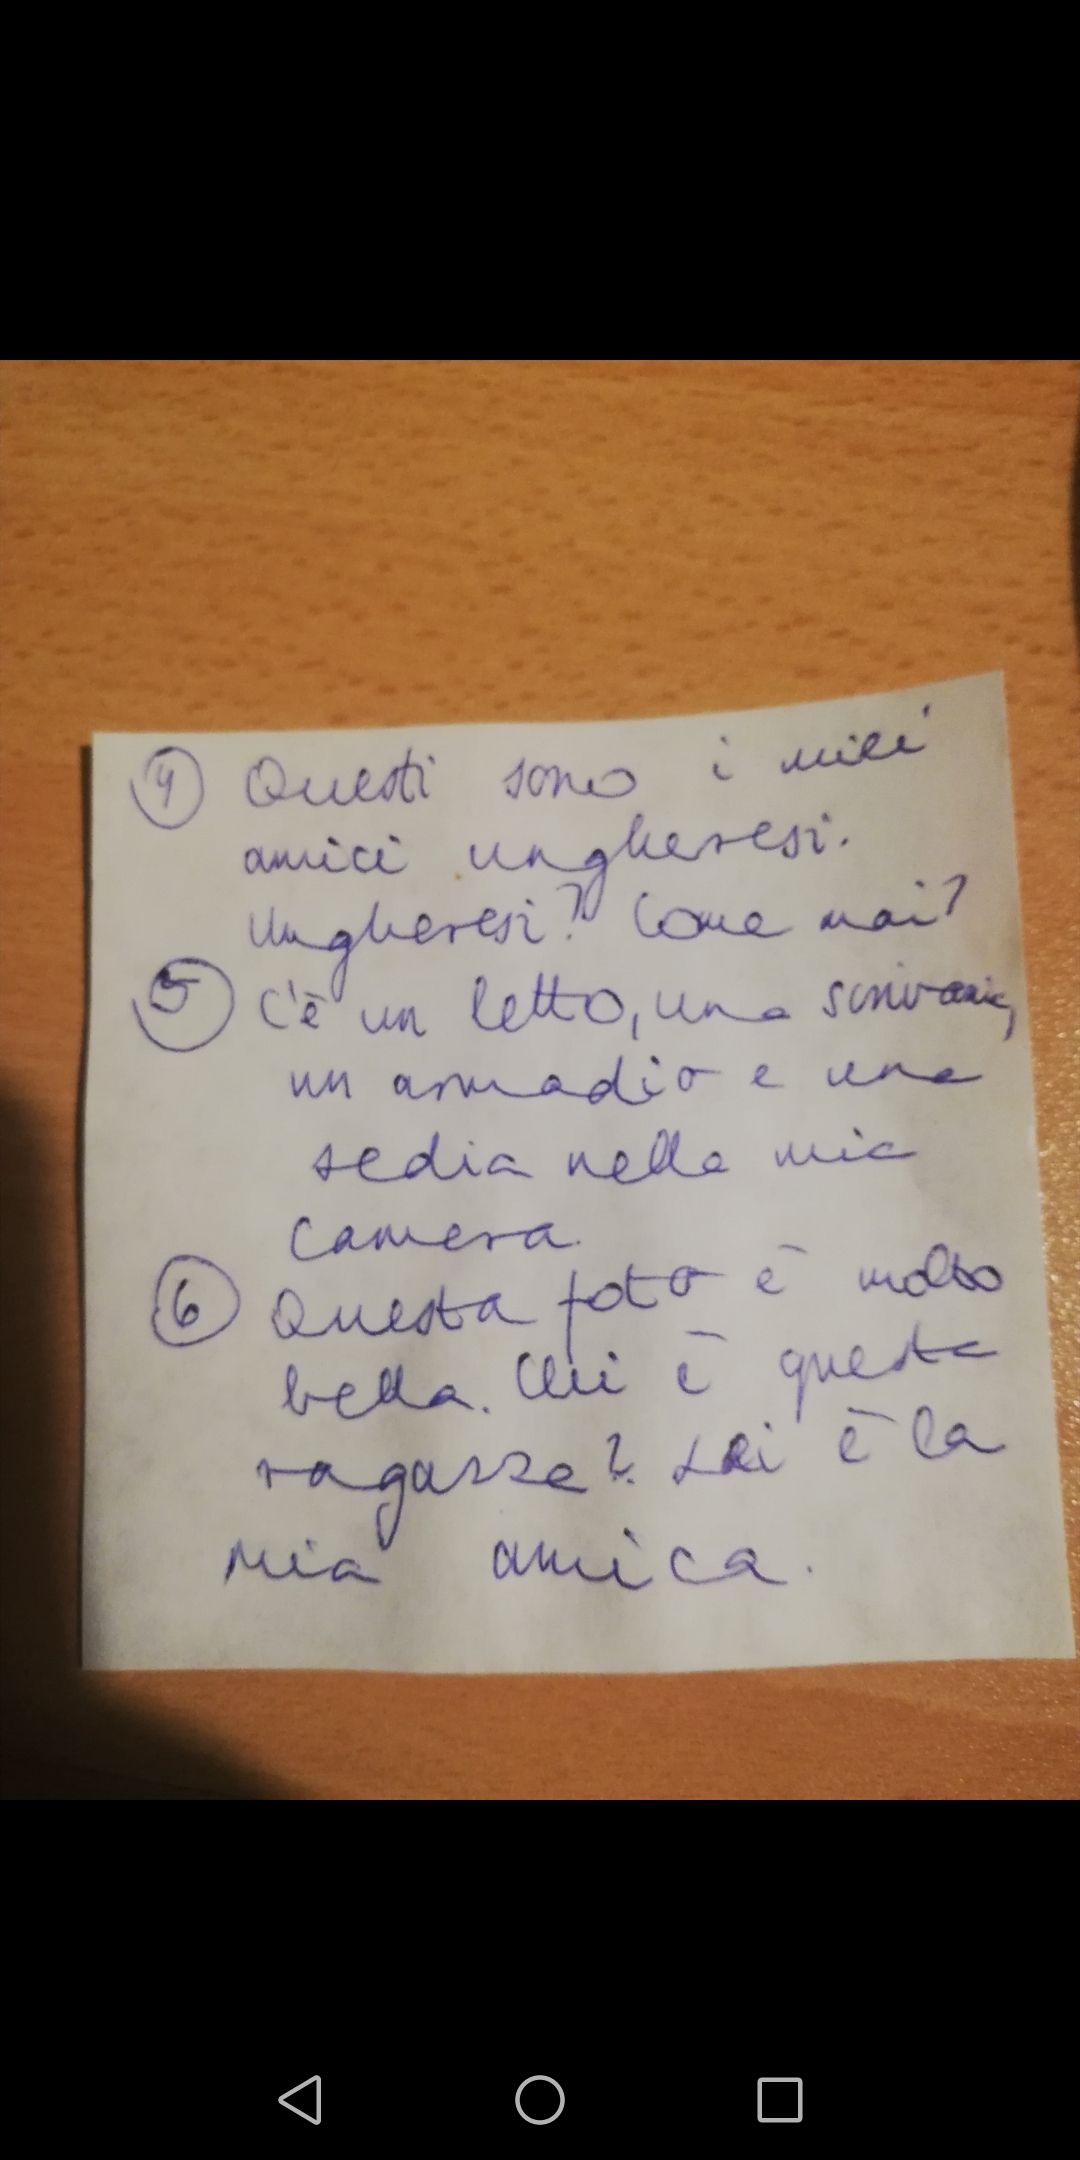 4 Questi sono i miei
amici ungheresi.
Ungheresi? Come mai?
5 C'è un letto, una scrivania,
un armadio e una
sedia nella mia
camera.
6 Questa foto è molto
bella. Chi è questa
ragazza? Lei è la
mia amica.